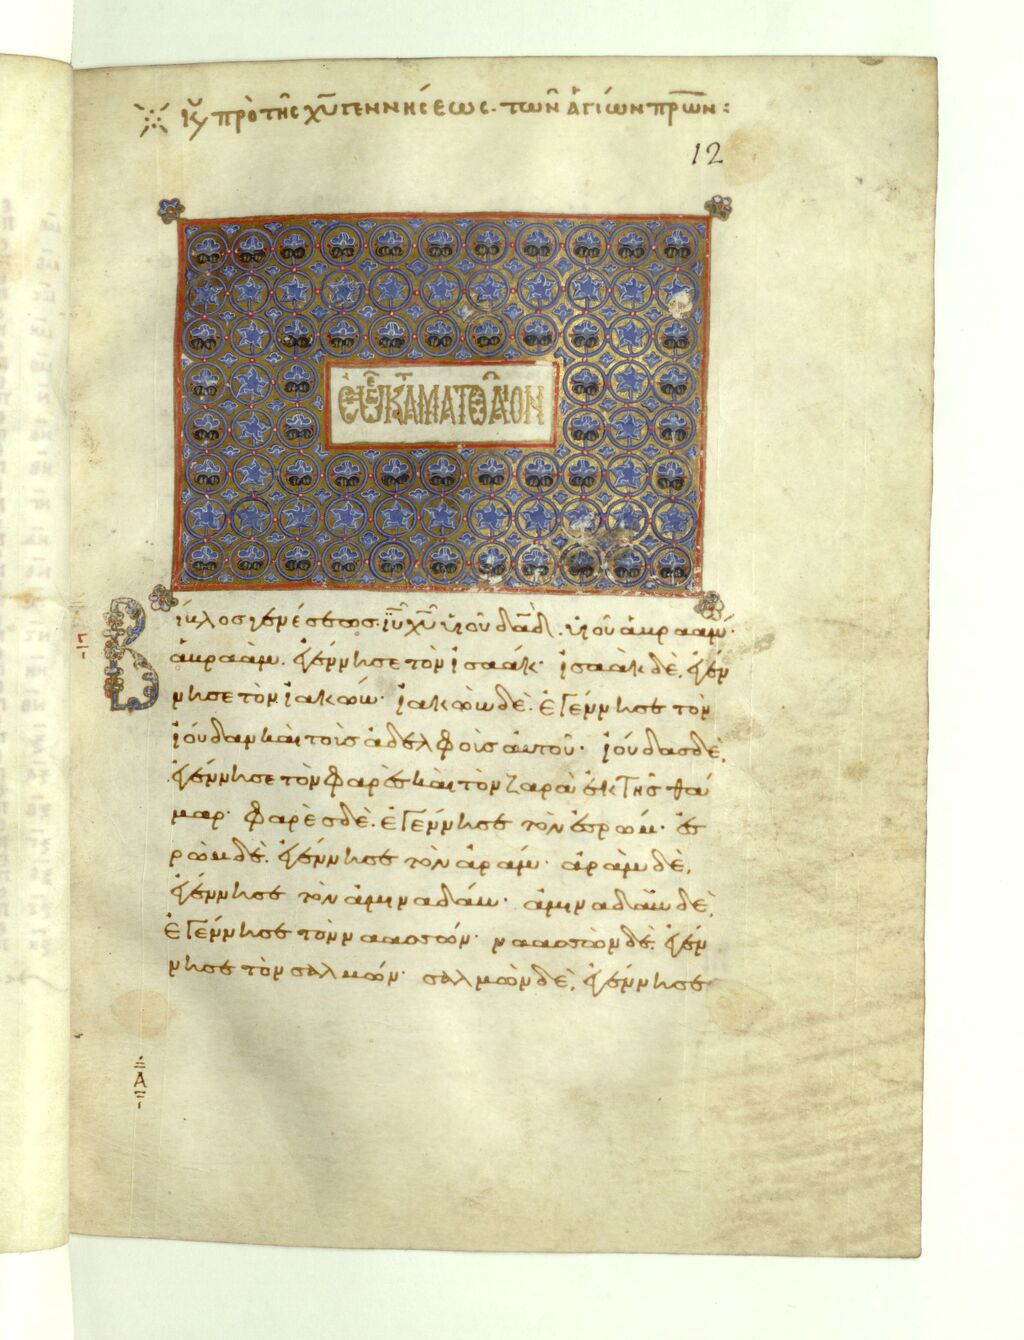 κυ πρὸ τῆς χυ γεννήσεως. τῶν ἁγίων πρων:
12
ΕΥ ΚΑΤΑ ΜΑΤΘΑΙΟΝ
Βίβλος γενέσεως ιυ χυ υἱοῦ δαδ. υἱοῦ ἀβραάμ·
ἀβραάμ. ἐγέννησε τὸν ἰσαάκ· ἰσαὰκ δὲ, ἐγέν
νησε τὸν ἰακώβ· ἰακὼβ δὲ. ἐγέννησε τὸν
ἰούδαν καὶ τοὺς ἀδελφοὺς αὐτοῦ· ἰούδας δὲ,
ἐγέννησε τὸν φαρὲς καὶ τὸν ζαρὰ ἐκ τῆς θά
μαρ· φαρὲς δὲ. ἐγέννησε τὸν ἐσρώμ· ἐσ
ρὼμ δὲ. ἐγέννησε τὸν ἀράμ· ἀρὰμ δὲ,
ἐγέννησε τὸν ἀμιναδάμ· ἀμιναδὰμ δὲ,
ἐγέννησε τὸν ναασσών· ναασσὼν δὲ. ἐγέν
νησε τὸν σαλμών· σαλμὼν δὲ, ἐγέννησε
Α